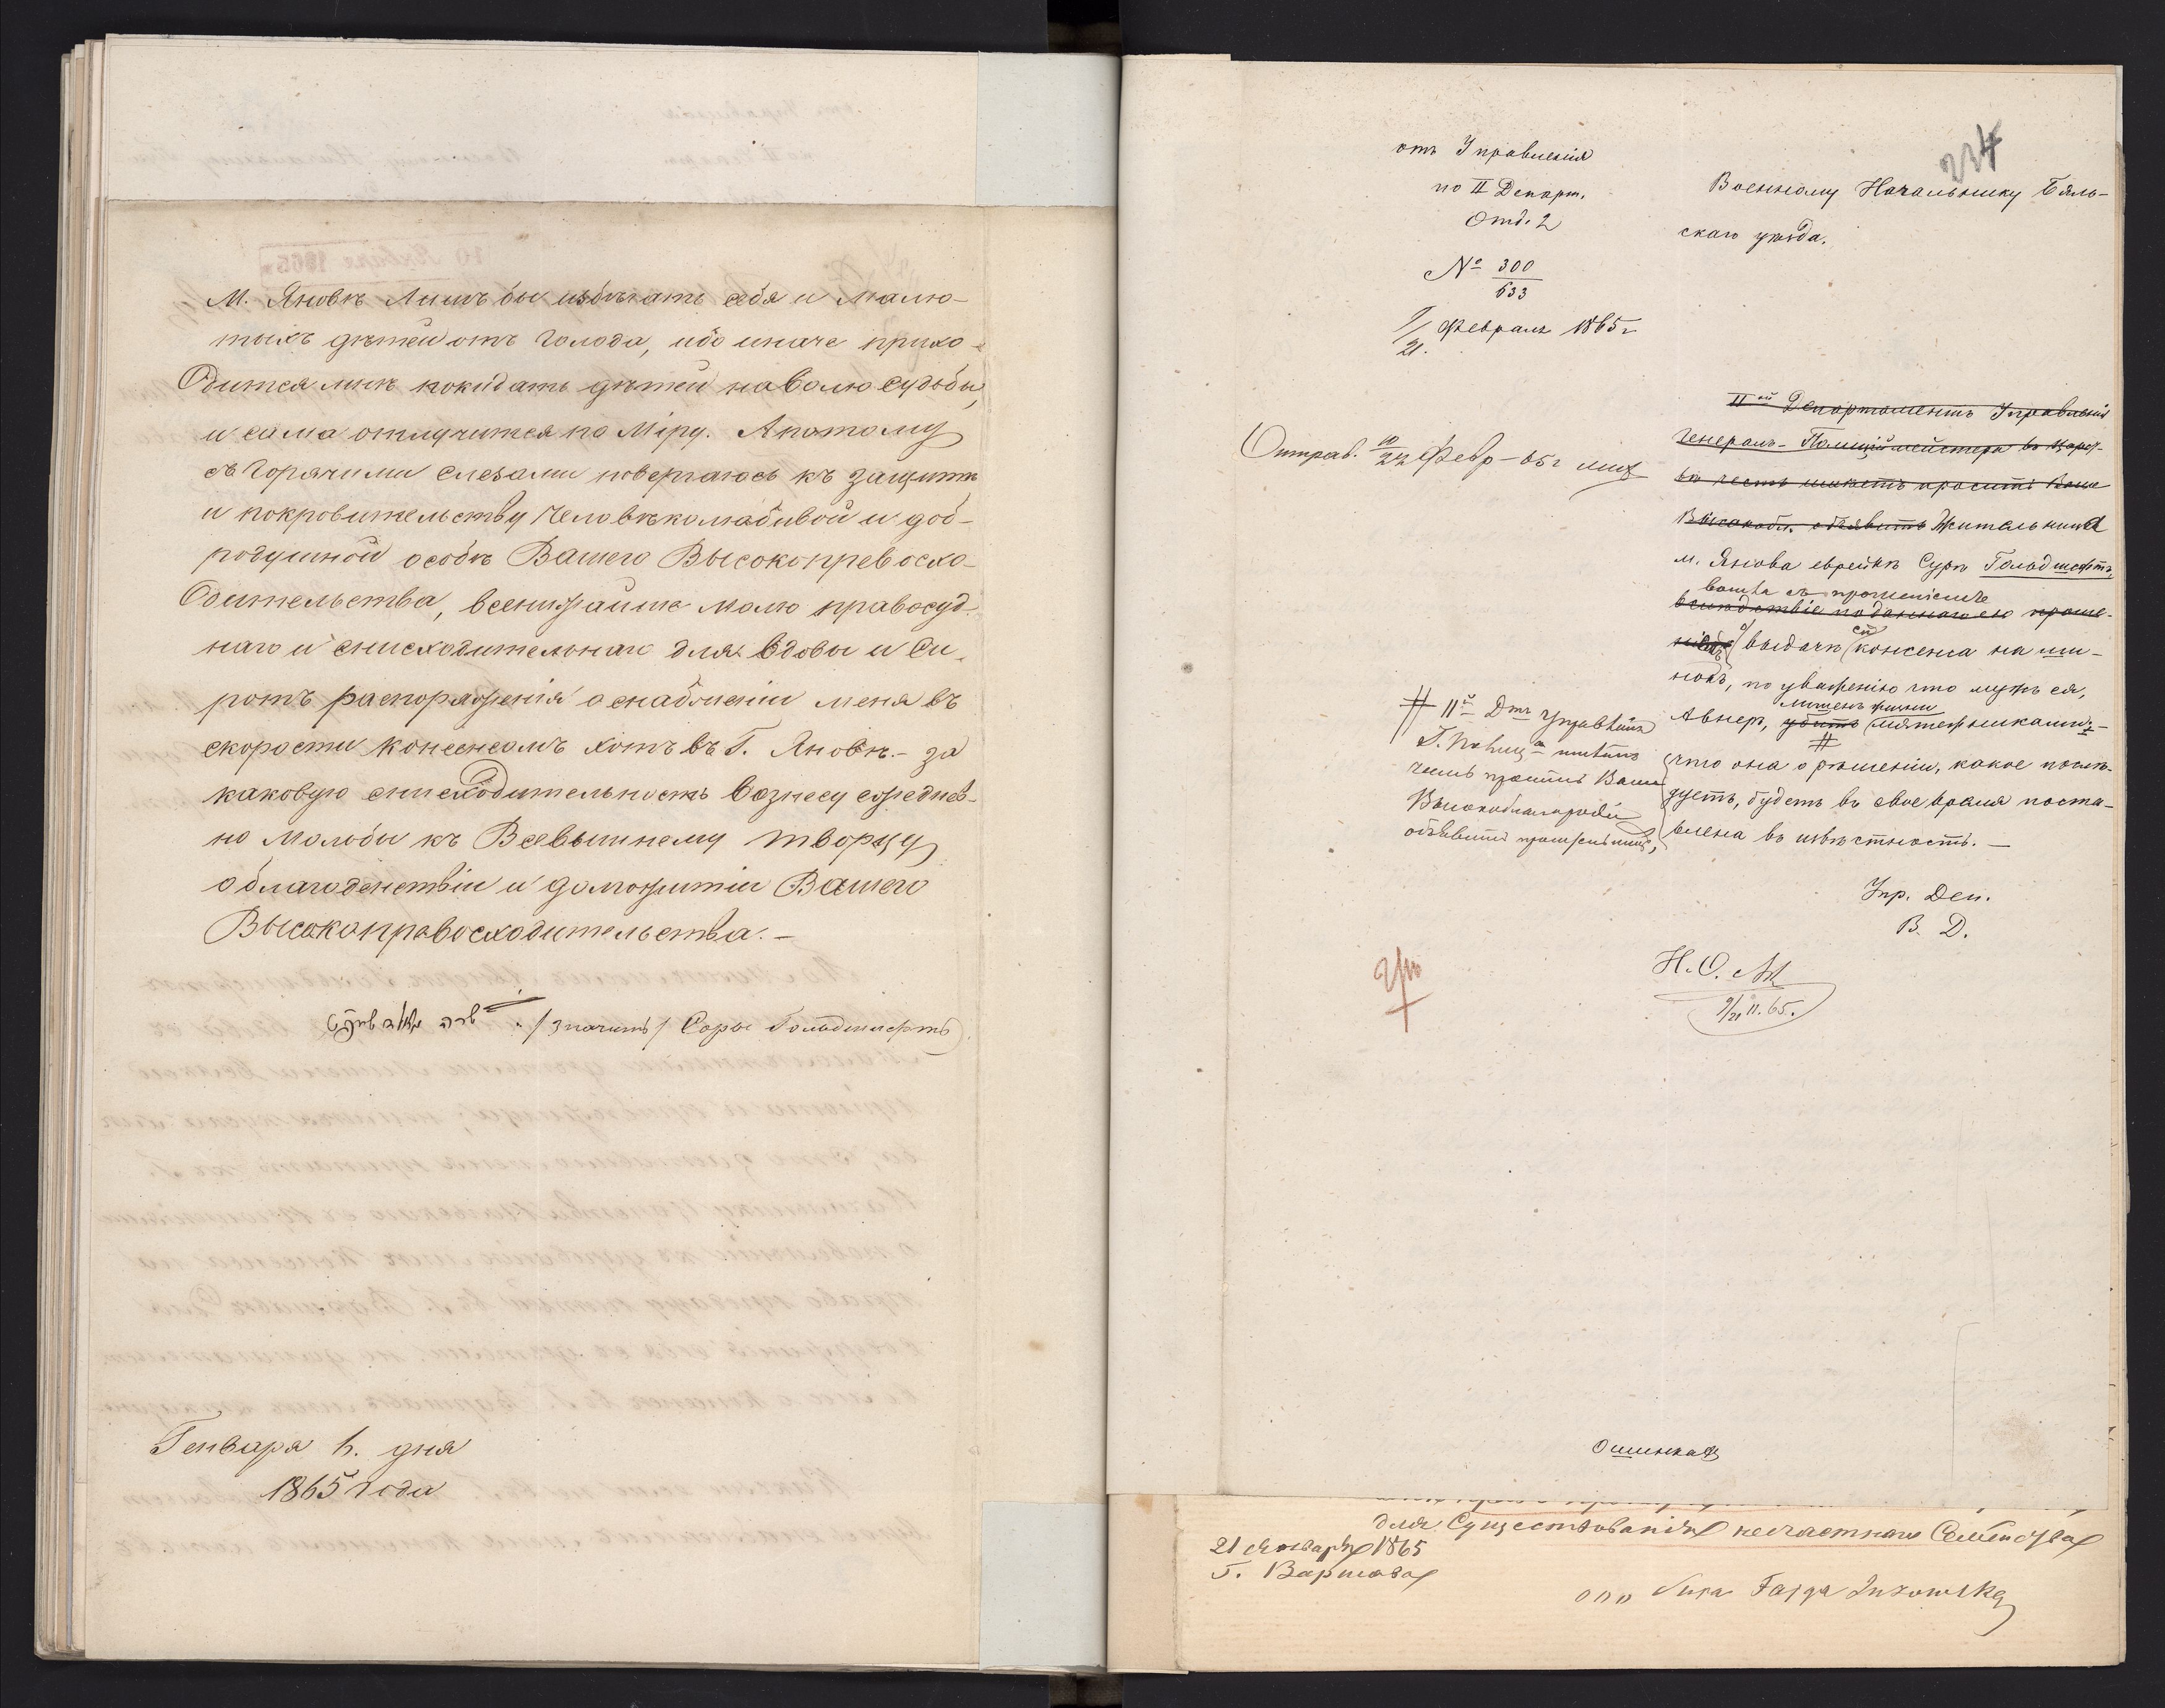 М. Яновѣ Лишъ бы избѣгать себя и малю-
тыхъ дѣтей отъ голода, ибо иначе прихо-
дится мнѣ покидать дѣтей на волю судьбы,
и сама отлучится по Міру. А потому
съ горячими слезами повергаюсь къ защитѣ
и покровительству Человѣколюбивой и доб-
родушной особѣ Вашего Высокопревосхо-
дительства, всенижайше молю правосуд-
наго и снисходительнаго для вдовы и Си-
ротъ распоряженія о снабженіи меня въ
скорости консенсомъ хотъ въ Г. Яновѣ. - за
каковую снисходительность вознесу ежеднев-
но мольбы къ Всевышнему творцу
о благоденствіи и должитіи Вашего
Высокоправосходительства. -
שרה /значитъ/ Соры Гольдшафтъ
Генваря 6. дня
1865 года
234
отъ Управленія
по II Департ.
Отд. 2
№ 300
633
9/21. Февраля 1865 г
Военному Начальнику Бяль-
скаго уѣзда.
Отправ. 10/22 Февр - 65 г
IIой Департаментъ Управленія
Генералъ-Полиціймейстера въ Царст-
вѣ честь имѣетъ проситъ Ваше
Высокобл. объявить Жительница
м. Янова еврейкѣ Сурѣ Гольдшафтъ,
вошла съ прошеніемъ
вслѣдствіе поданнаго ею проше-
нія о выдачѣ ей консенса на ши-
нокъ, по уваженію что мужъ ея,
лишенъ жизни
Авнер, убитъ мятежниками, -
#
что она о рѣшеніи, какое послѣ-
дуетъ, будетъ въ свое время поста-
влена въ извѣстность. —
# IIй Дтъ Управленія
Г. Полиц-а имѣетъ
честь проситъ Ваше
Высокоблагородіе
объявить просительницѣ,
Упр. Деп.
В. Д.
Н. О.
9/21 II. 65.
для Существованія несчастнаго Семейства
21 Января 1865
Г. Варшава